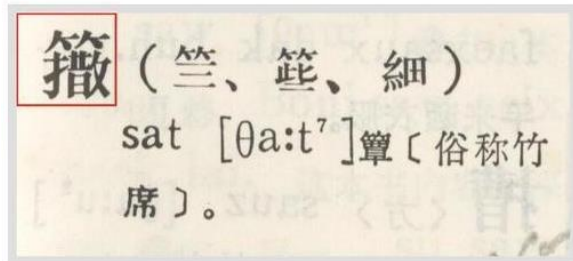 （、、細）
sat [θa:t⁷]簟〔俗称竹
席〕。